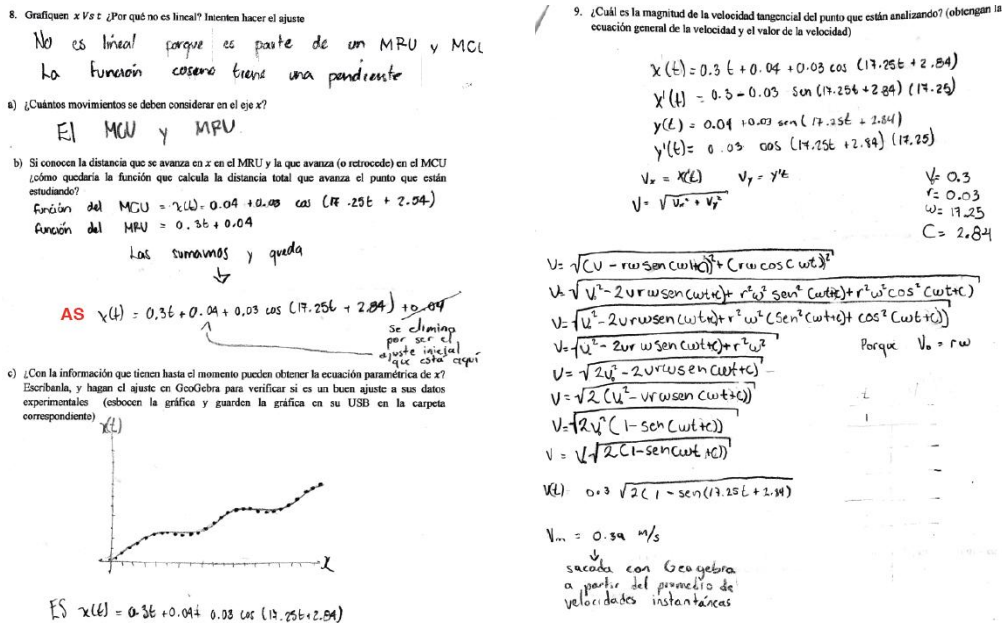 8. Grafiquen x Vs t ¿Por qué no es lineal? Intenten hacer el ajuste
No es lineal porque es parte de un MRU y MCU
La función coseno tiene una pendiente
a) ¿Cuántos movimientos se deben considerar en el eje x?
El MCU y MRU
b) Si conocen la distancia que se avanza en x en el MRU y la que avanza (o retrocede) en el MCU
¿cómo quedaría la función que calcula la distancia total que avanza el punto que están
estudiando?
Función del MCU = x(t) = 0.04 + 0.03 cos (17.25t + 2.54)
función del MRU = 0.3t + 0.04
Las sumamos y queda
AS x(t) = 0.3t + 0.04 + 0.03 cos (17.25t + 2.84) + 0.04
se elimina
por ser el
ajuste inicial
que está aquí
c) ¿Con la información que tienen hasta el momento pueden obtener la ecuación paramétrica de x?
Escribanla, y hagan el ajuste en GeoGebra para verificar si es un buen ajuste a sus datos
experimentales (esbocen la gráfica y guarden la gráfica en su USB en la carpeta
correspondiente)
x(t)
x
ES x(t) = 0.3t + 0.04 + 0.03 cos (17.25t + 2.84)
9. ¿Cuál es la magnitud de la velocidad tangencial del punto que están analizando? (obtengan la
ecuación general de la velocidad y el valor de la velocidad)
x(t) = 0.3 t + 0.04 + 0.03 cos (17.25t + 2.84)
x'(t) = 0.3 - 0.03 sen (17.25t + 2.84) (17.25)
y(t) = 0.04 + 0.03 sen (17.25t + 2.84)
y'(t) = 0.03 cos (17.25t + 2.84) (17.25)
Vx = x'(t) Vy = y't
V = √Vx² + Vy²
V = 0.3
r = 0.03
ω = 17.25
C = 2.84
V = √(V - rω sen(ωt+c))² + (rω cos(ωt))²
V = √V² - 2vrω sen(ωt+c) + r²ω² sen²(ωt+c) + r²ω² cos²(ωt+c)
V = √V² - 2vrω sen(ωt+c) + r²ω² (sen²(ωt+c) + cos²(ωt+c))
V = √V² - 2vr ω sen(ωt+c) + r²ω²
Porque V₀ = rω
V = √2V² - 2vrω sen(ωt+c)
V = √2(V² - vrω sen(ωt+c))
V = √2V²(1 - sen(ωt+c))
V = V√2(1 - sen(ωt+c))
V(t) 0.3 √2(1 - sen(17.25t + 2.84)
Vm = 0.39 m/s
sacada con Geogebra
a partir del promedio de
velocidades instantáneas